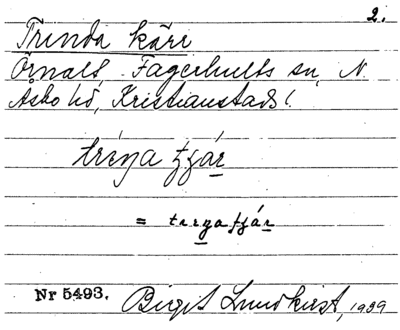 2.
Trinda kärr
Örnalt, Fagerhults sn, N.
Åsbo hd, Kristianstads l.
trèna tjár
= trena tjár
Nr 5493. Birgit Lundkvist, 1939